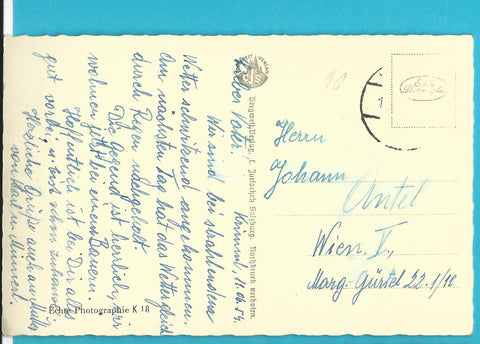 Krimml, 11.06.54.
Lieber Vater!
Wir sind bei strahlendem
Wetter schwitzend angekommen.
Am nächsten Tag hat das Wetter gleich
durch Regen nachgeholt
Die Gegend ist herrlich, wir
wohnen jetzt bei einem Bauern.
Hoffentlich ist bei Dir alles
gut vorbei, u. bist schon zuhause
Herzliche Grüße auch an Mutti
von Karl u.
Echte Photographie K 18
C J S
Bergwelt-Verlag, C. Jurischek Salzburg. Nachdruck verboten.
10
Echte
Herrn
Johann
Antel
Wien V.,
Marg. Gürtel 22.1/10